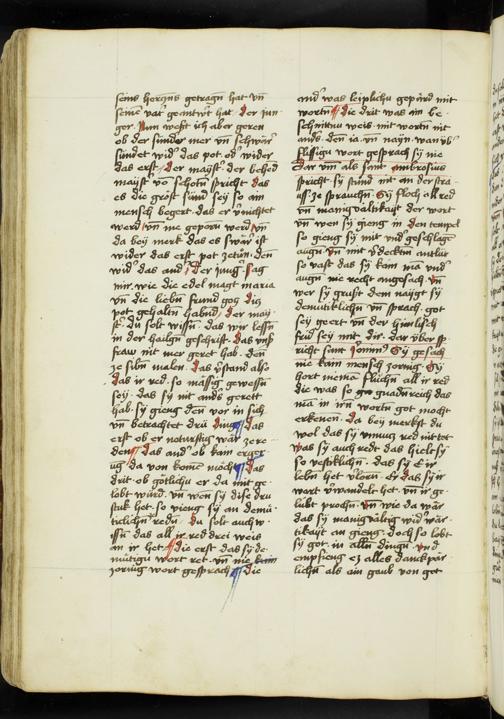 seins herczns getragn hat vn
seine vat geantwrt hat. Der jun
ger. Nun west ich aber geren
ob der sunder mer vn schwär
sündet wid das pot. od wider
das erst. Der mayst der behed
mayst vo schotn spricht das
es die gröst sünd sey so ain
mensch begert das er v̈nichtet
werd vn nie geporn werd. Vn
da bey merk das es swär ist
wider das erst pot zetun. den
wid das and. Der jung. Sag
mir wie die edel magt maria
vn die liebn fraind gocz diz
pot gehaltn habnd. der may
st. du solt wissn. das wir lesn
in der hailgn geschrift. das vnß
fraw nit mer geret hab. den
ze sibn malen. das v̈stand also
das ir red. so mässig gewessn
sey. das sy nit ands gerett
hab. sy gieng den vor in sich
vn betrachtet drü ding. das
erst ob er noturftig wär zere
den. das and ob kain erger
ug da von komn möcht. das
drit. ob götlichu er da mit ge
lobt würd. vn wen sy dise dru
stuk het. so vieng sy an demü
ticlichn redn. Du solt auch w
issn das all ir red drei weis
an ir het. die erst. das sy de
mütigu wort ret. vn nie kain
zornig wort gesprach. die
and was leiplichu gepärd mit
wortn. die drit was ain be
schnittnu weis. mit wortn nit
ands. den ia. vn nayn. wan v̈b
flüssigu wort gesprach sy nie
dar vm als sant ambrosius
spricht sy stund nit an der stra
ss ze sprachn. Sy floch all red
vn manigvaltikayt der wort
vn wen sy gieng in den tempel
so gieng sy mit vnd geschlagn
augn. vn mit v̈decktm antlut
so vast das sy kain ma vnd
augn nie recht angesach. Vn
wer sy grust dem naygt sy
demutiklichn vn sprach. got
sey geert vn der himlisch
frid sey mit dir. dar v̈ber sp
richt sant Jeronim. Sy gesach
nie kain mensch zornig. Sy
hort nieman fluchn all ir red
die was so gnadnreich das
ma in irn wortn got mocht
erkenen. Da bey merkst du
wol das sy vnnucz red nit tet
Was sy auch redt das hielt sy
so vestiklichn. das sy E ir
lebn het v̈lorn. Er das sy ir
wort v̈wandelt het. vn ir ge
lubt prochn. Vn wie da wär
das sy manigvältig wid wär
tikayt an gieng. doch so lobt
sy got in alln dingn. vnd
empfieng es alles danckpär
lichn als ain gaub von got